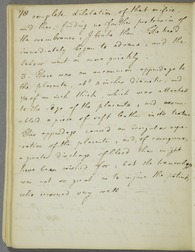 78 complete dilatation of that orifice,
and then, finding no further protrusion of
the membranes, I broke them. The head
immediately began to advance, and the
labour went on more quickly.
3. There was an uncommon appendage to
the placenta, at a distance, and
of an inch thick which was attached
to the edge of the placenta, and resem-
bled a piece of soft leather
This appendage caused an irregular sepa-
ration of the placenta, and, of consequence,
a greater discharge of blood than might
have been wished for; but the hæmorrhage
was not so great as to injure the patient,
who recovered very well.